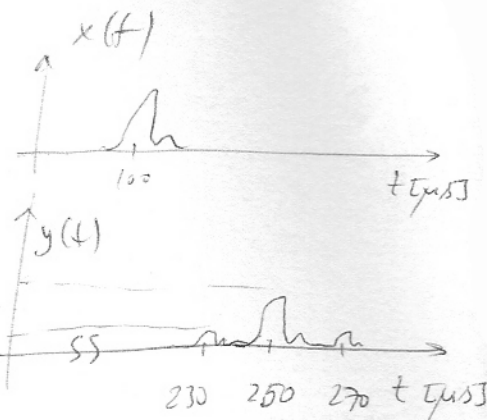 x(t)
100
t [µs]
y(t)
230 250 270 t [µs]